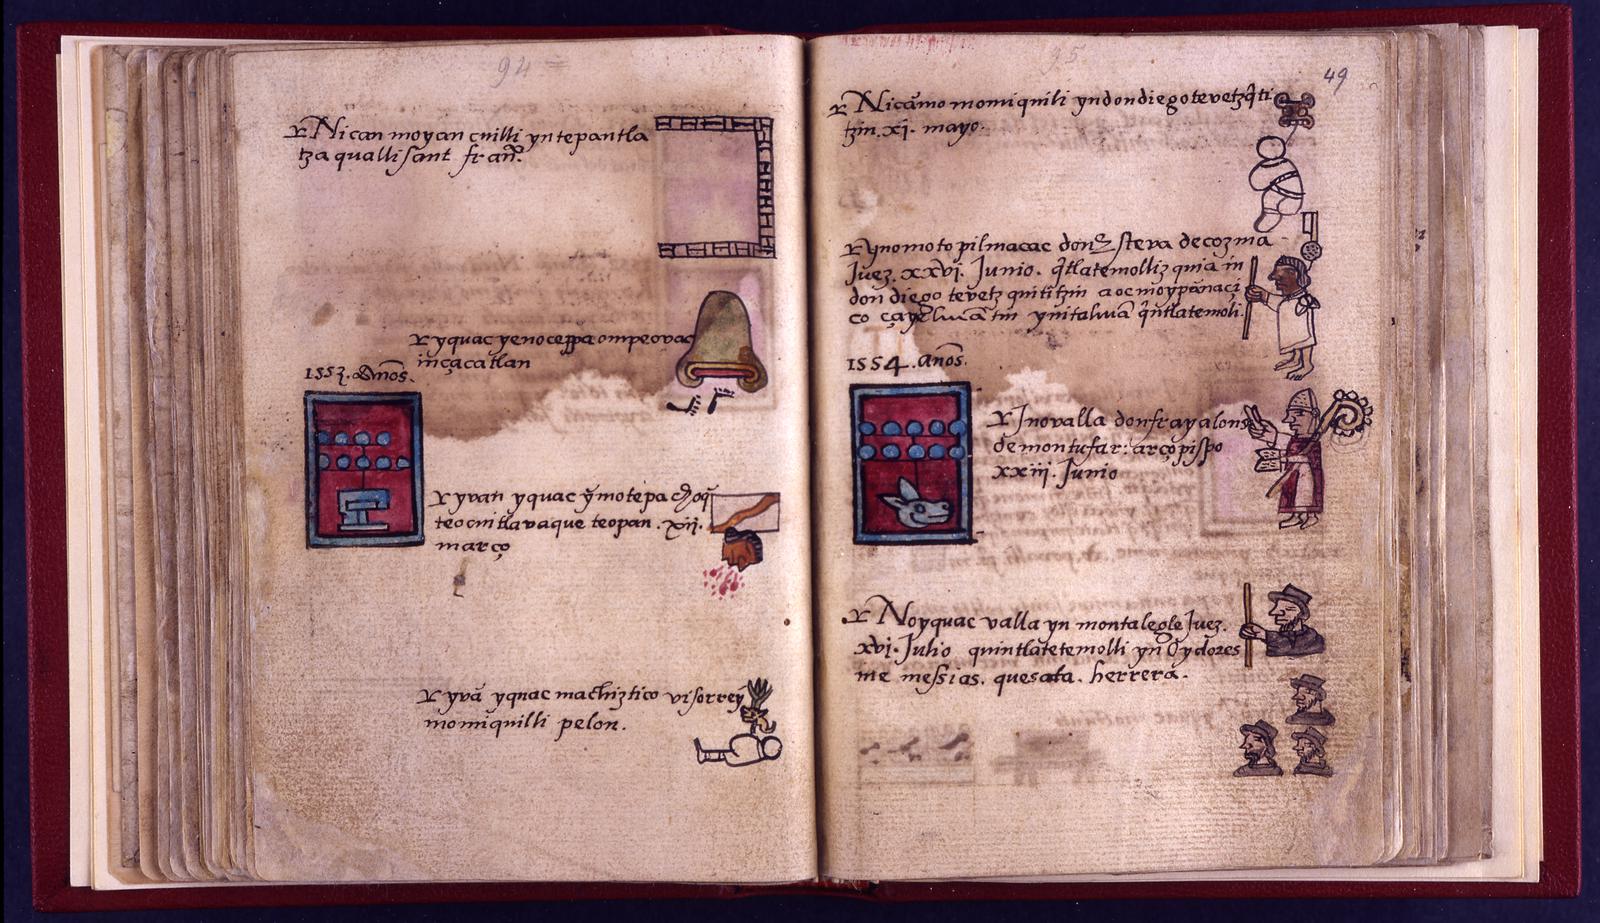 94
Nican moyan cuilli yn tepantla
tza qualli sant fraño.
yquac yenoceppa ompeovac
inçacatlan
1553. años.
yvan yquac ỹmotepachoq̃
teocuitlavaque teopan. xij.
março
yvã yquac machiztico visorrey
momiquilli pelon.
95
49
Nicãmo momiquili yndondiegotevetzq̃ti
tzin. xi. mayo.
ynomotopilmacac don esteva decozma
Juez. xxvi. Junio. q̃tlatemolliz quia in
don diego tevetz quititzin
1554. años.
Inovalla donfrayalonso
demontufar: arçopispo
xxiii. Junio
Noyquac valla yn montalegle Juez.
xvi. Julio quintlatetemolli yn oydores
ine messias. quesata. herrera.